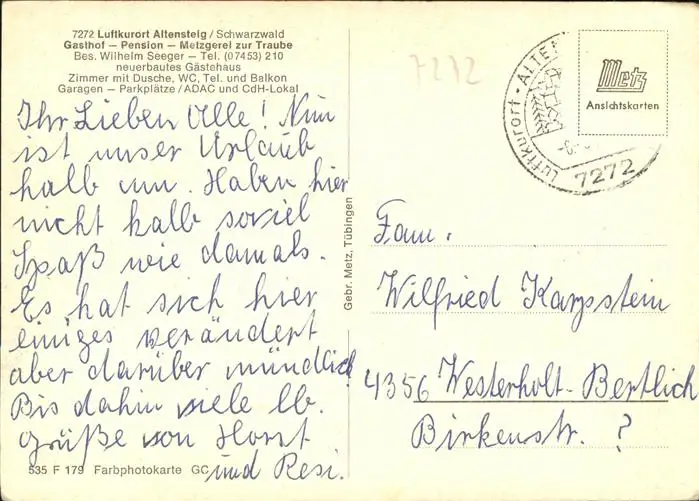 7272 Luftkurort Altensteig / Schwarzwald
Gasthof – Pension – Metzgerei zur Traube
Bes. Wilhelm Seeger – Tel. (07453) 210
neuerbautes Gästehaus
Zimmer mit Dusche, WC, Tel. und Balkon
Garagen – Parkplätze / ADAC und CdH-Lokal
Ihr Lieben Alle! Nun
ist unser Urlaub
halb um. Haben hier
nicht halb soviel
Spaß wie damals.
Es hat sich hier
einiges verändert
aber darüber mündlich!
Bis dahin viele lb.
Grüße von Horst
und Resi.
535 F 179 Farbphotokarte GC
Gebr. Metz, Tübingen
7272
Luftkurort · ALTEN
7272
Metz
Ansichtskarten
Fam.
Wilfried Karpstein
4356 Westerholt-Bertlich
Birkenstr. ?